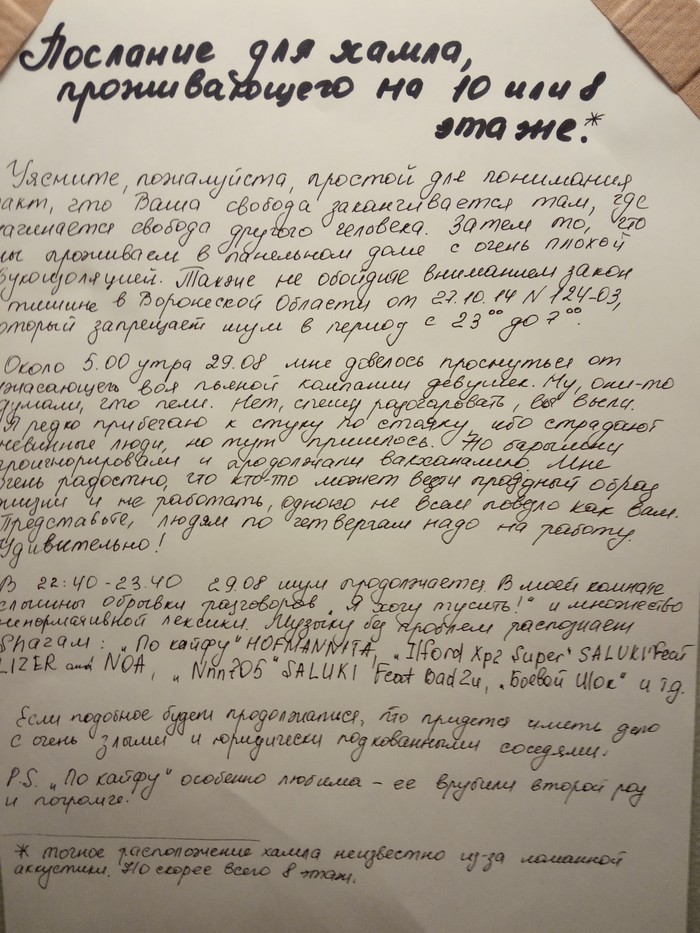 Послание для хамла,
проживающего на 10 или 8
этаже.*
Уясните, пожалуйста, простой для понимания
факт, что Ваша свобода заканчивается там, где
начинается свобода другого человека. Затем то, что
мы проживаем в панельном доме с очень плохой
звукоизоляцией. Также не обойдите вниманием закон
тишине в Воронеской Области от 27.10.14 N 124-03,
оторый запрещает шум в период с 23⁰⁰ до 7⁰⁰.
Около 5.00 утра 29.08 мне довелось проснуться от
ужасающего воя пьяной компании девушек. Ну, они-то
думали, что пели. Нет, спешу разочаровать, вы выли.
Я редко прибегаю к стуку по стояку, ибо страдают
невинные люди, но тут пришлось. Но барышни
проигнорировали и продолжали вакханалию. Мне
очень радостно, что кто-то может вести праздный образ
жизни и не работать, однако не всем повезло как вам.
Представьте, людям по четвергам надо на работу.
Удивительно!
В 22:40-23.40 29.08 шум продолжается. В моей комнате
слышны обрывки разговоров „Я хочу тусить!“ и множество
ненормативной лексики. Музыку без проблем распознает
Shazam: „По кайфу“ HOFMANNITA, „Ilford Xp2 Super“ SALUKI Feat
LIZER and NOA, „Nnn705“ SALUKI Feat Bad Zu, „Боевой Шок“ и т.д.
Если подобное будет продолжаться, то придется иметь дело
с очень злыми и юридически подкованными соседями.
P.S. „По кайфу“ особенно любима – ее врубили второй раз
и погромче.
* точное расположение хамла неизвестно из-за ломанной
аккустики. Но скорее всего 8 этаж.